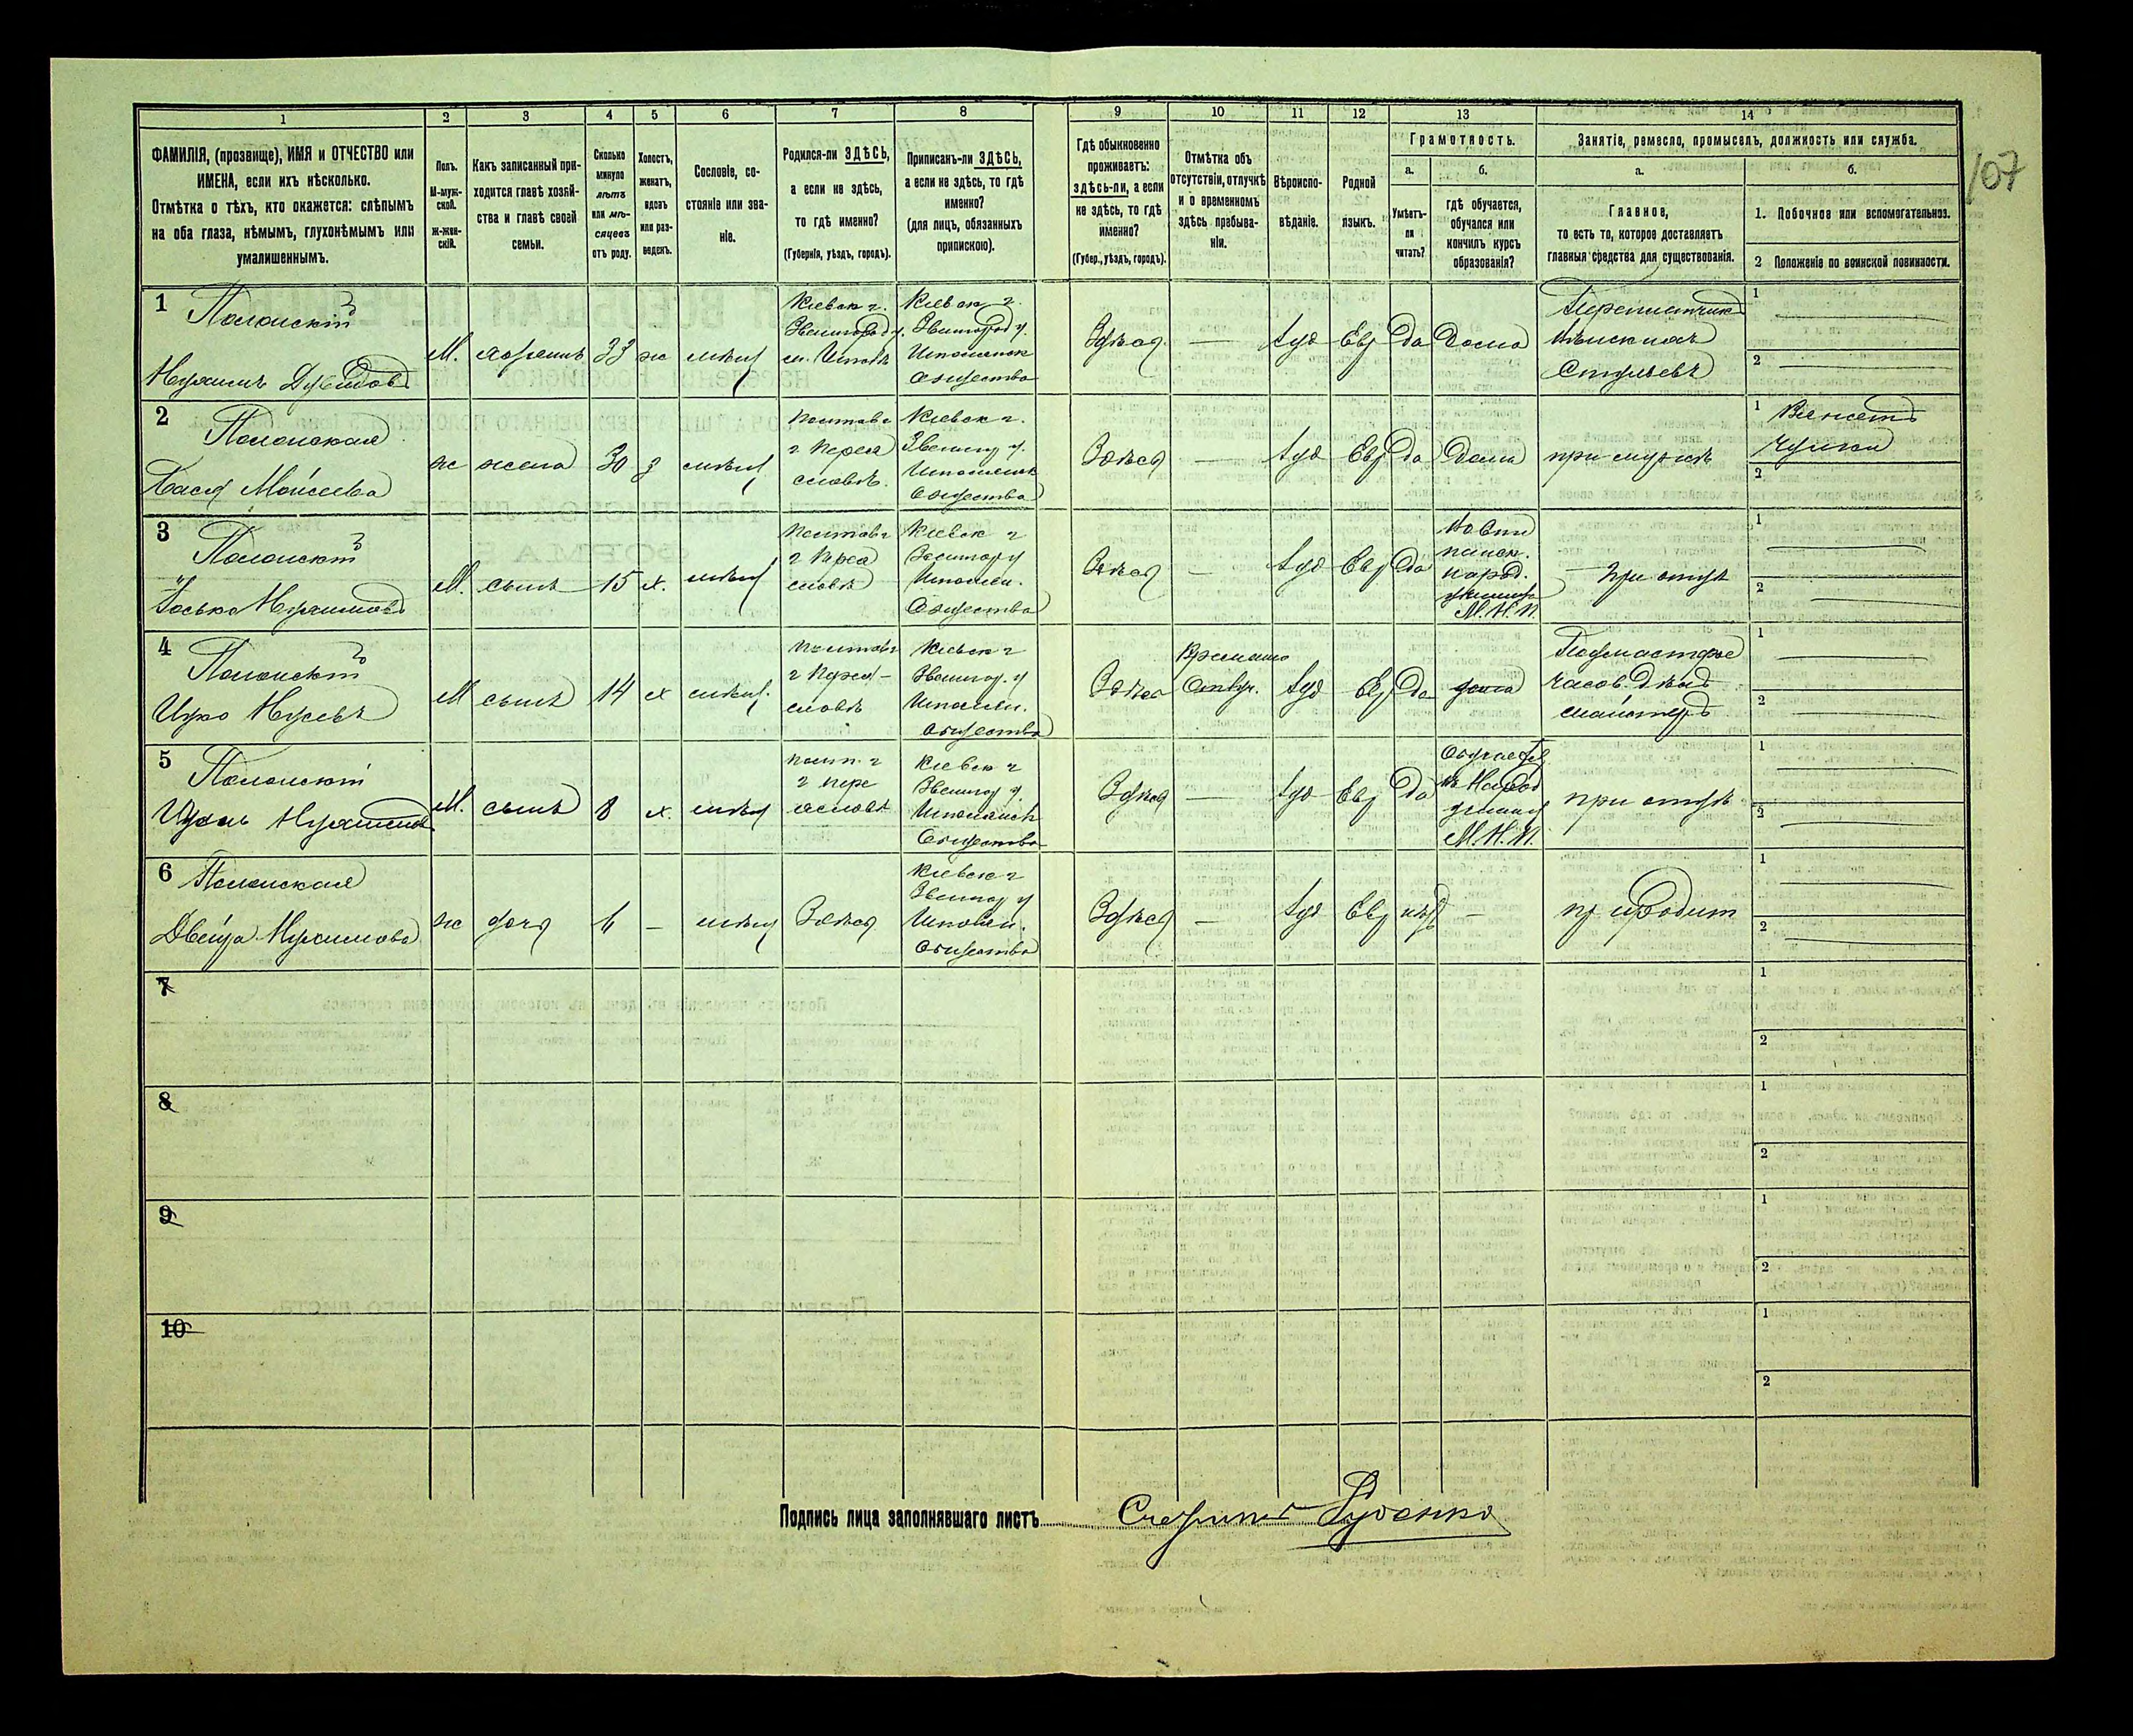 107
1 2 3 4 5 6 7 8 9 10 11 12 13 14
ФАМИЛІЯ, (прозвище), ИМЯ и ОТЧЕСТВО или
ИМЕНА, если ихъ нѣсколько.
Отмѣтка о тѣхъ, кто окажется: слѣпымъ
на оба глаза, нѣмымъ, глухонѣмымъ или
умалишеннымъ.
Полъ.
М-муж-
ской.
ж-жен-
скій.
Какъ записанный при-
ходится главѣ хозяй-
ства и главѣ своей
семьи.
Сколько
минуло
лѣтъ
или мѣ-
сяцевъ
отъ роду.
Холостъ,
женатъ,
вдовъ
или раз-
веденъ.
Сословіе, со-
стояніе или зва-
ніе.
Родился-ли ЗДѢСЬ,
а если не здѣсь,
то гдѣ именно?
(Губернія, уѣздъ, городъ).
Приписанъ-ли ЗДѢСЬ,
а если не здѣсь, то гдѣ
именно?
(для лицъ, обязанныхъ
припискою).
Гдѣ обыкновенно
проживаетъ:
здѣсь-ли, а если
не здѣсь, то гдѣ
именно?
(Губер., уѣздъ, городъ).
Отмѣтка объ
отсутствіи, отлучкѣ
и о временномъ
здѣсь пребыва-
ніи.
Вѣроиспо-
вѣданіе.
Родной
языкъ.
Грамотность.
а.
Умѣетъ-
ли
читать?
б.
гдѣ обучается,
обучался или
кончилъ курсъ
образованія?
Занятіе, ремесло, промыселъ, должность или служба.
а.
Главное,
то есть то, которое доставляетъ
главныя средства для существованія.
б.
1. Побочное или вспомогательное.
2 Положеніе по воинской повинности.
1 Полонскій
М. хозяинъ 33 ж мѣщ
Кіевск г.
Звенигород у.
м. Шпола
Кіевск г.
Звенигород у.
Шполянск
общества
Здѣсь — Іуд Евр Да Дома
Вѣнскихъ
Стульевъ
1
2
2 Полонская
Бася Моисеева
ж жена 30 з мѣщ
Полтав г
г Перея
славлѣ.
Кіевск г.
Звениг у.
Шполянск
общества
Здѣсь — Іуд Евр Да Дома при мужѣ
1 Вяжетъ
чулки
2
3 Полонскій
М. сынъ 15 х. мѣщ
Полтав г
г Переа
славлѣ
Кіевск г
Звенигор у
Шполян.
Общества
Здѣсь — Іуд Евр Да
народ.
училище
М.Н.П.
При отцѣ
1
2
4 Полонскій
М сынъ 14 х мѣщ.
Полтав г
г Перея-
славлѣ
Кіевск г
Звениг. у
Шполян.
общества
Здѣсь
Временно
Отлуч.
Іуд Евр Да дома
Подмастерье
часов. дѣлъ
1
2
5 Полонскій
М. сынъ 8 х. мѣщ
Полт. г
г Пере
яславлѣ
Кіевск г
Звениг у.
Шполянск
Общества
Здѣсь — Іуд Евр Да
въ Народ
училищ
М.Н.П.
при отцѣ
1
2
6 Полонская
ж дочь 6 — мѣщ Здѣсь
Кіевск г
Звениг у
Шполян.
общества
Здѣсь — Іуд Евр нѣтъ —
1
2
7
1
2
8
1
2
9
1
2
10
1
2
Подпись лица заполнявшаго листъ